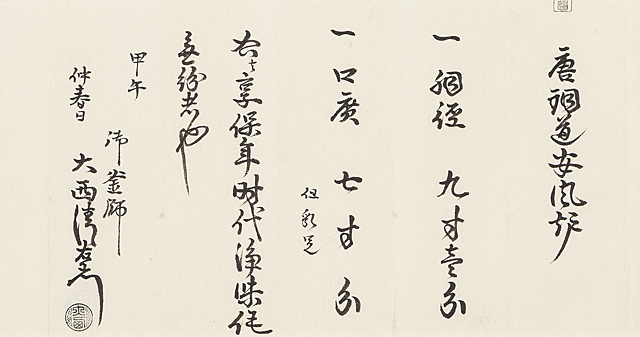 唐銅道安風炉
一 胴径 九寸壱分
一 口廣 七寸 分
但乳足
右者享保年時代浄味作
無紛者也
甲午
仲春日
御釜師
大西清右衛門